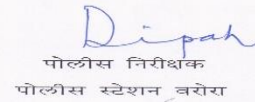 Dipak
पोलीस निरीक्षक
पोलीस स्टेशन वरोरा